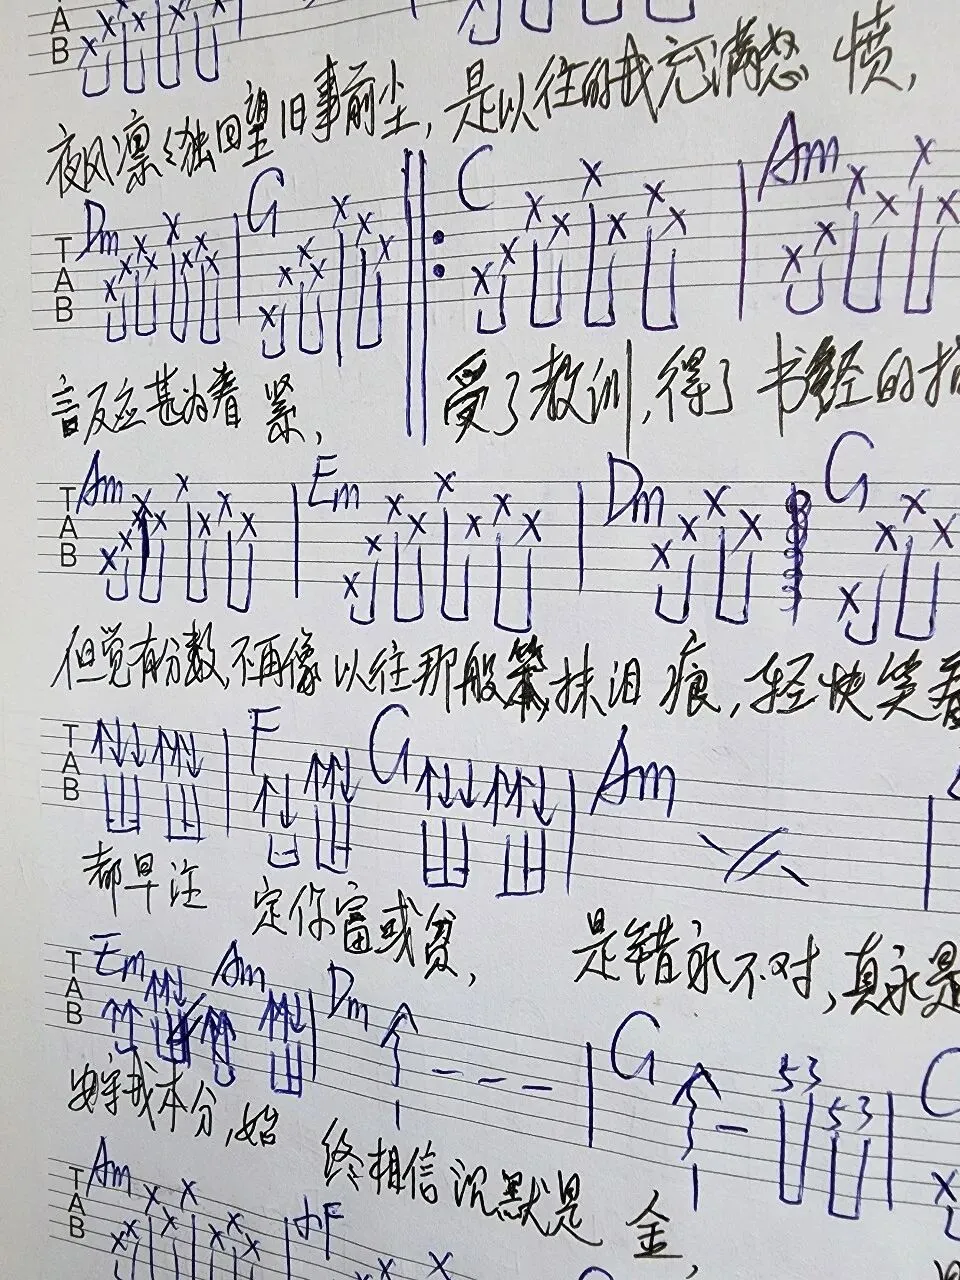 T
A
B
夜风凛 独回望旧事前尘，是以往的我充满怒 愤，
Dm G C Am
T
A
B
言反应甚为着 紧， 受了教训，得了书经的指
Am Em Dm G
T
A
B
但觉有分数，不再像以往那般笨，抹泪 痕，轻快笑着
F G Am
T
A
B
都早注 定你富或贫， 是错永不对，真永是
Em Am Dm G 53 53 C
T
A
B
安守我本分，始 终相信沉默是 金，
Am F
T
A
B